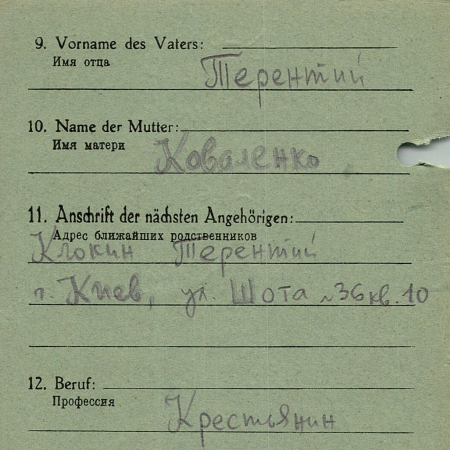 9. Vorname des Vaters:
Имя отца
Терентий
10. Name der Mutter:
Имя матери
Коваленко
11. Anschrift der nächsten Angehörigen:
Адрес ближайших родственников
Клокин Терентий
г. Киев, ул. Шота №36 кв. 10
12. Beruf:
Профессия
Крестьянин